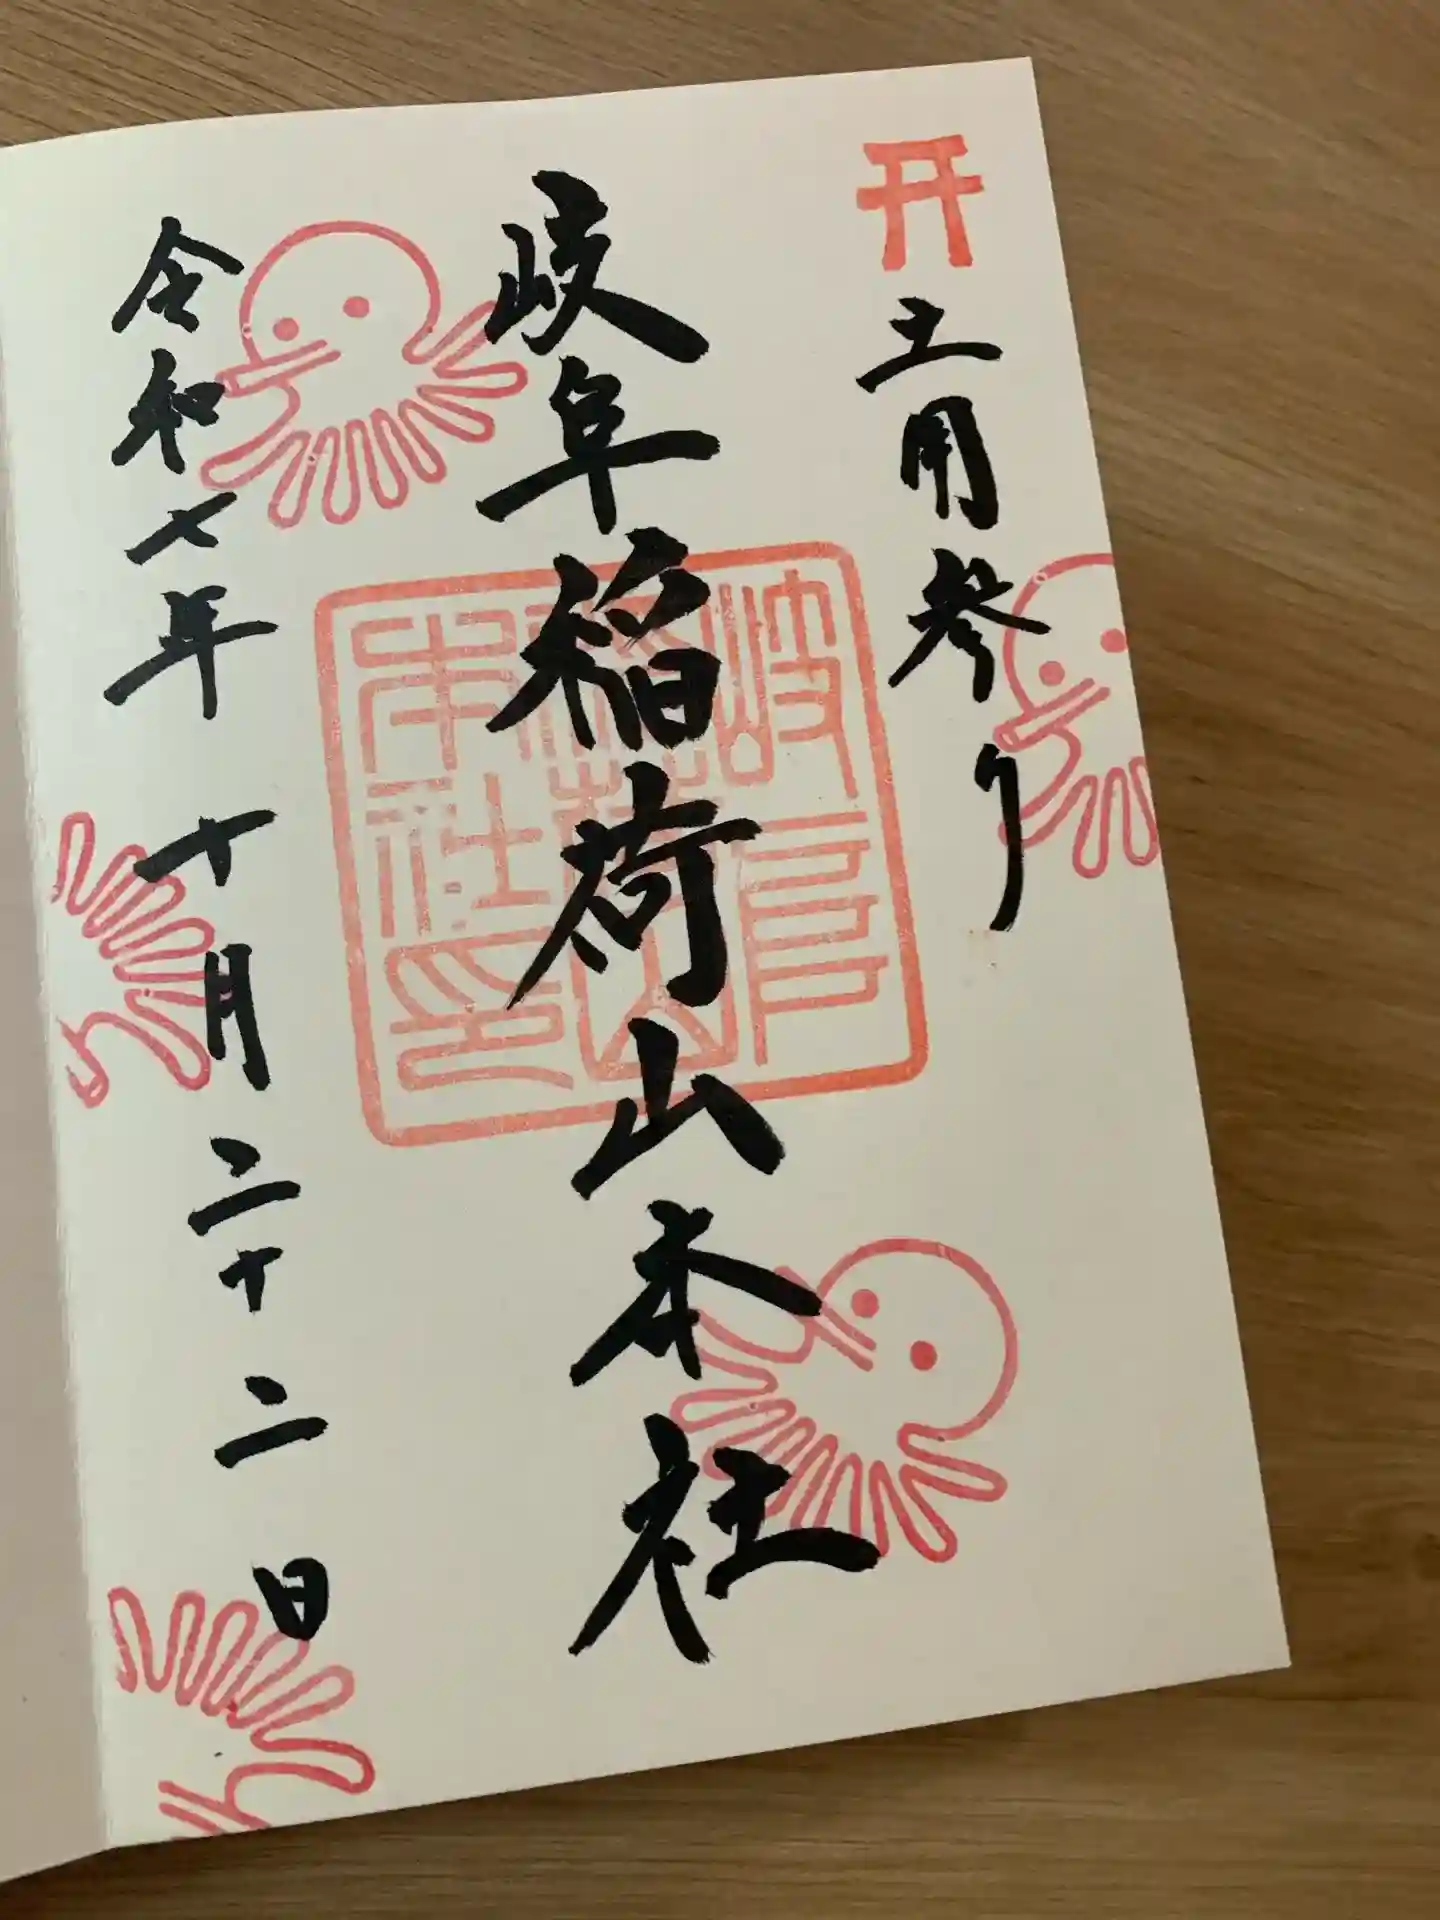 土用参り
岐阜稲荷山本社
岐阜稲荷山本社印
令和七年十月二十二日